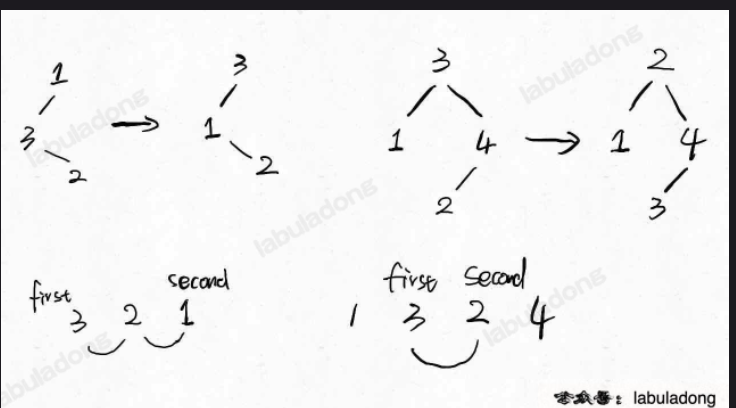 1 3 3 2
3 1 1 4 1 4
2 2 2 3
first second first second
3 2 1 1 3 2 4
labuladong
labuladong
labuladong
labuladong
labuladong
公众号：labuladong